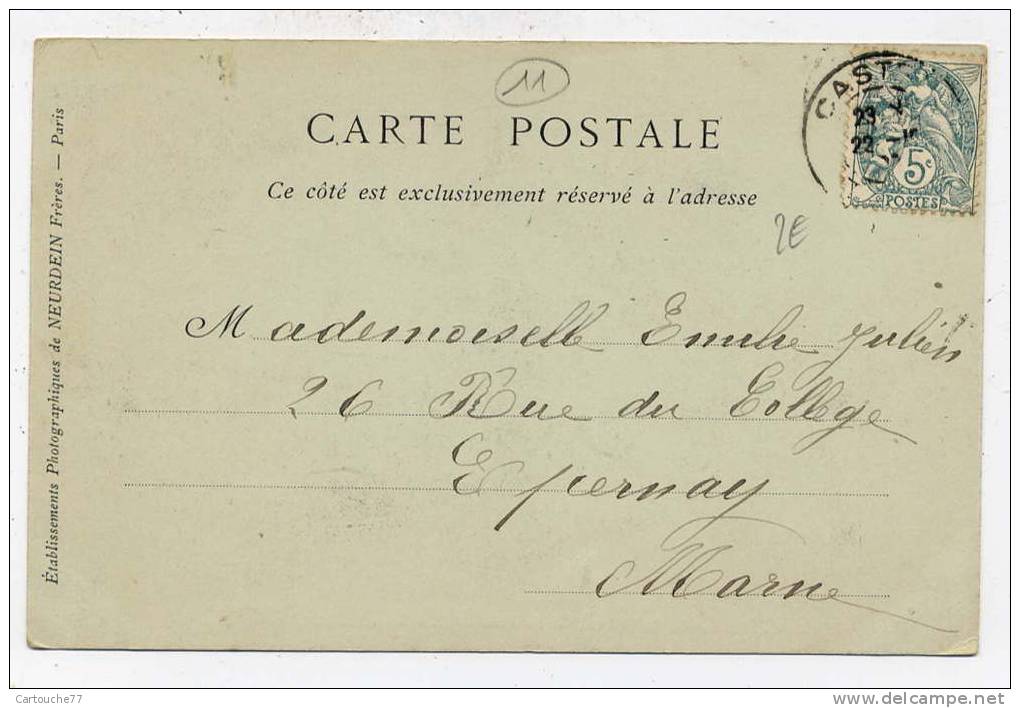 11
CARTE POSTALE
Ce côté est exclusivement réservé à l'adresse
CAST
23
22
5c
POSTES
2€
Mademoiselle Emilie Julien
26 Rue du College
Epernay
Marne
Établissements Photographiques de NEURDEIN Frères. — Paris
Cartouche77
www.delcampe.net